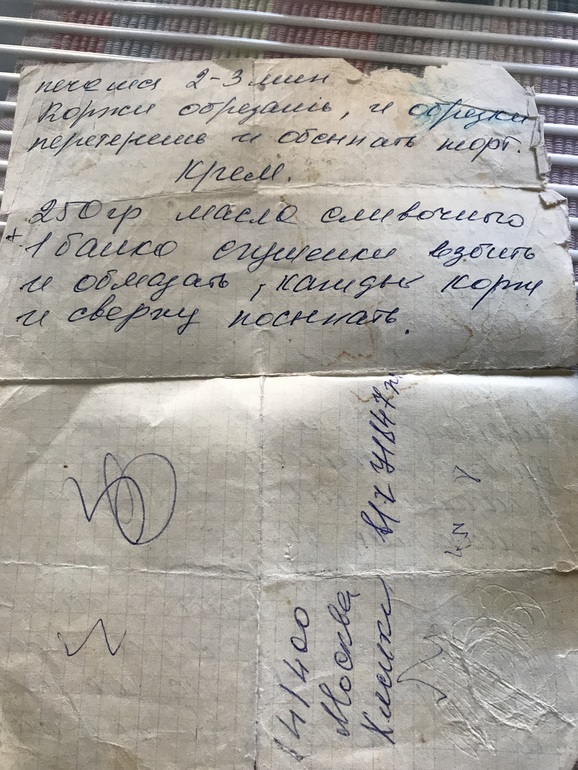 печется 2-3 мин
Коржи обрезать, и обрезки
перетереть и обсыпать торт.
Крем.
250 гр масло сливочного
+ 1 банко сгущенки взбить
и обмазать, каждый корж
и сверху посыпать.
141400
Москва
Химки